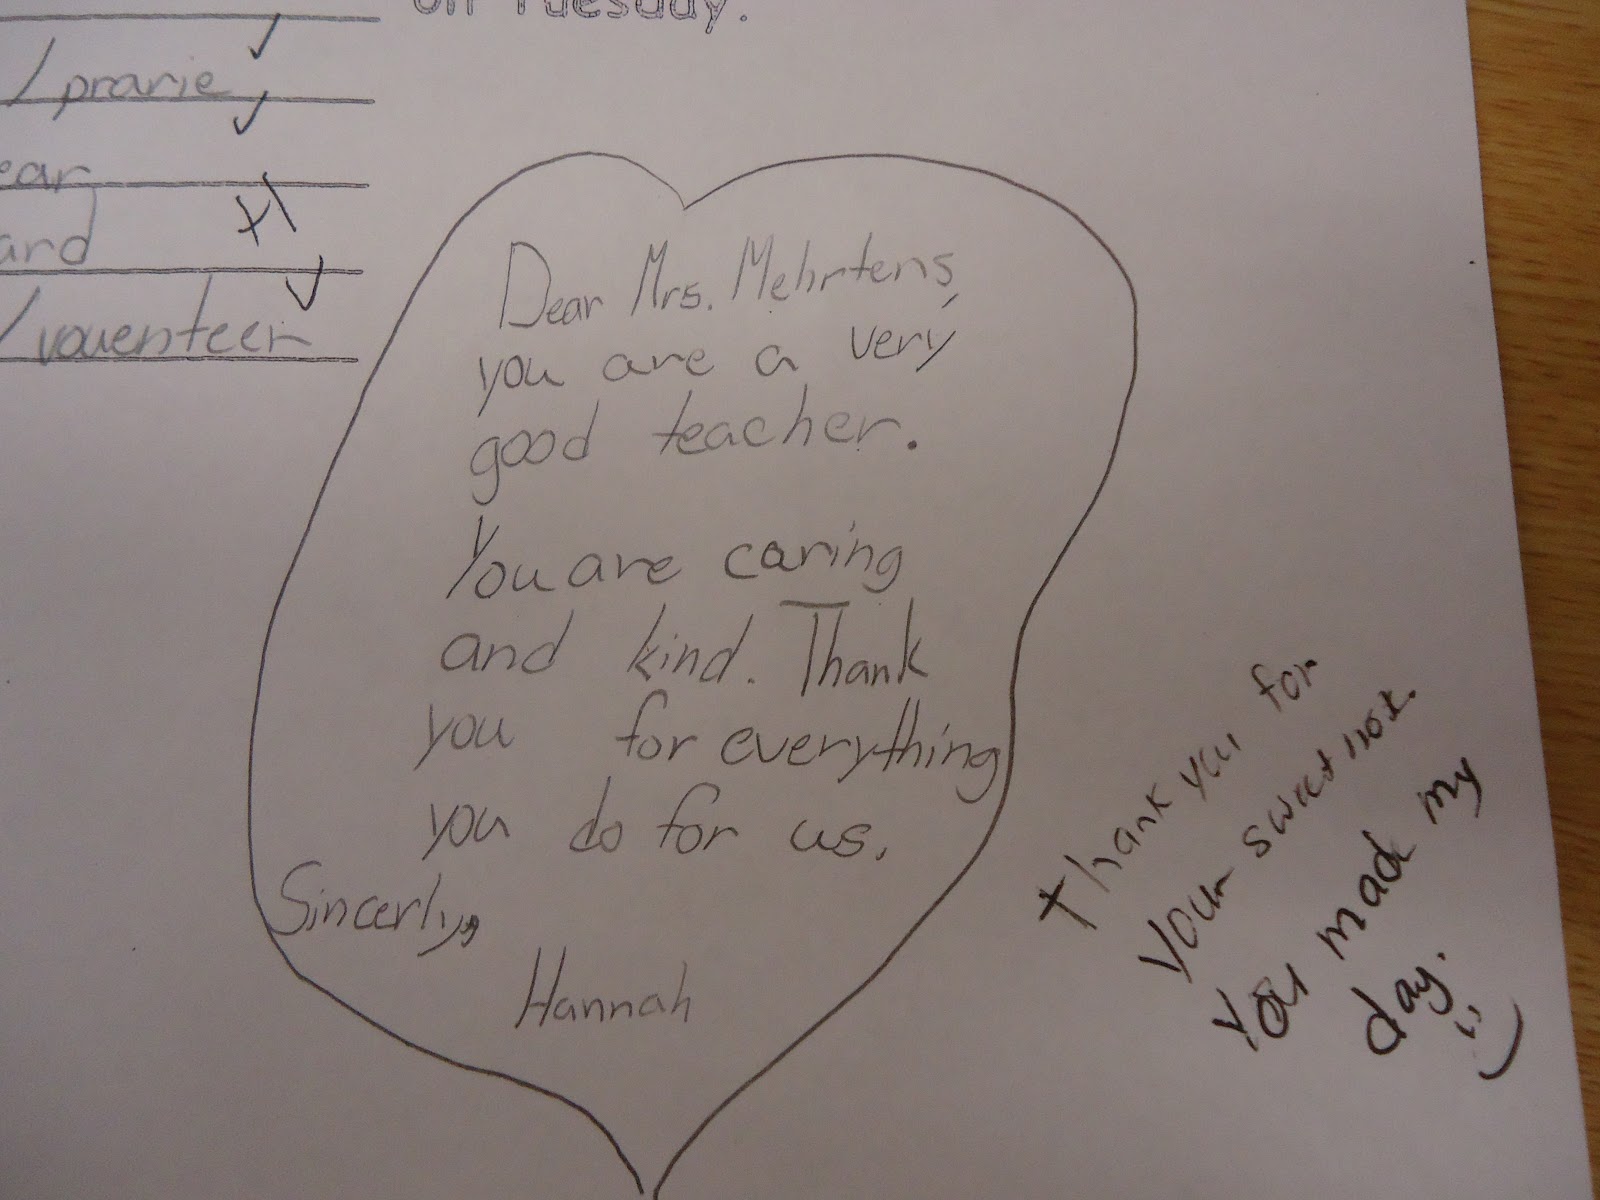 on Tuesday.
/ prarie
ear
+1
ard
/ vouenteer
Dear Mrs. Mehrtens,
you are a very
good teacher.
You are caring
and kind. Thank
you for everything
you do for us.
Sincerly,
Hannah
Thank you for
your sweet not.
You mad my
day.